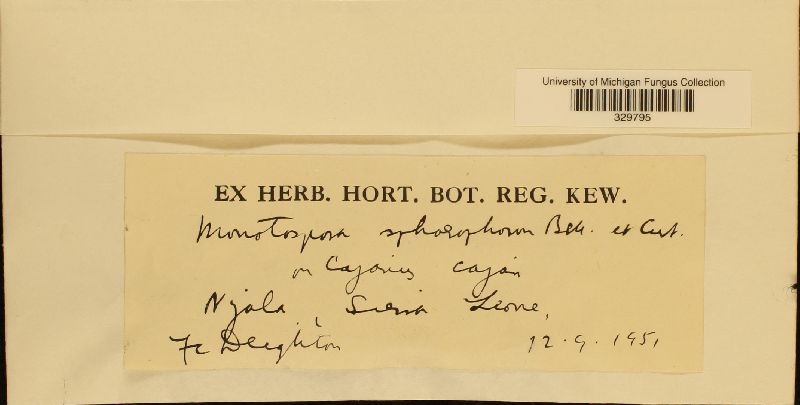 University of Michigan Fungus Collection
329795
EX HERB. HORT. BOT. REG. KEW.
Monotospora sphaerophoron Berk. et Curt.
on Cajanus cajan
Njala, Sierra Leone,
Fc Deighton 12.9.1951